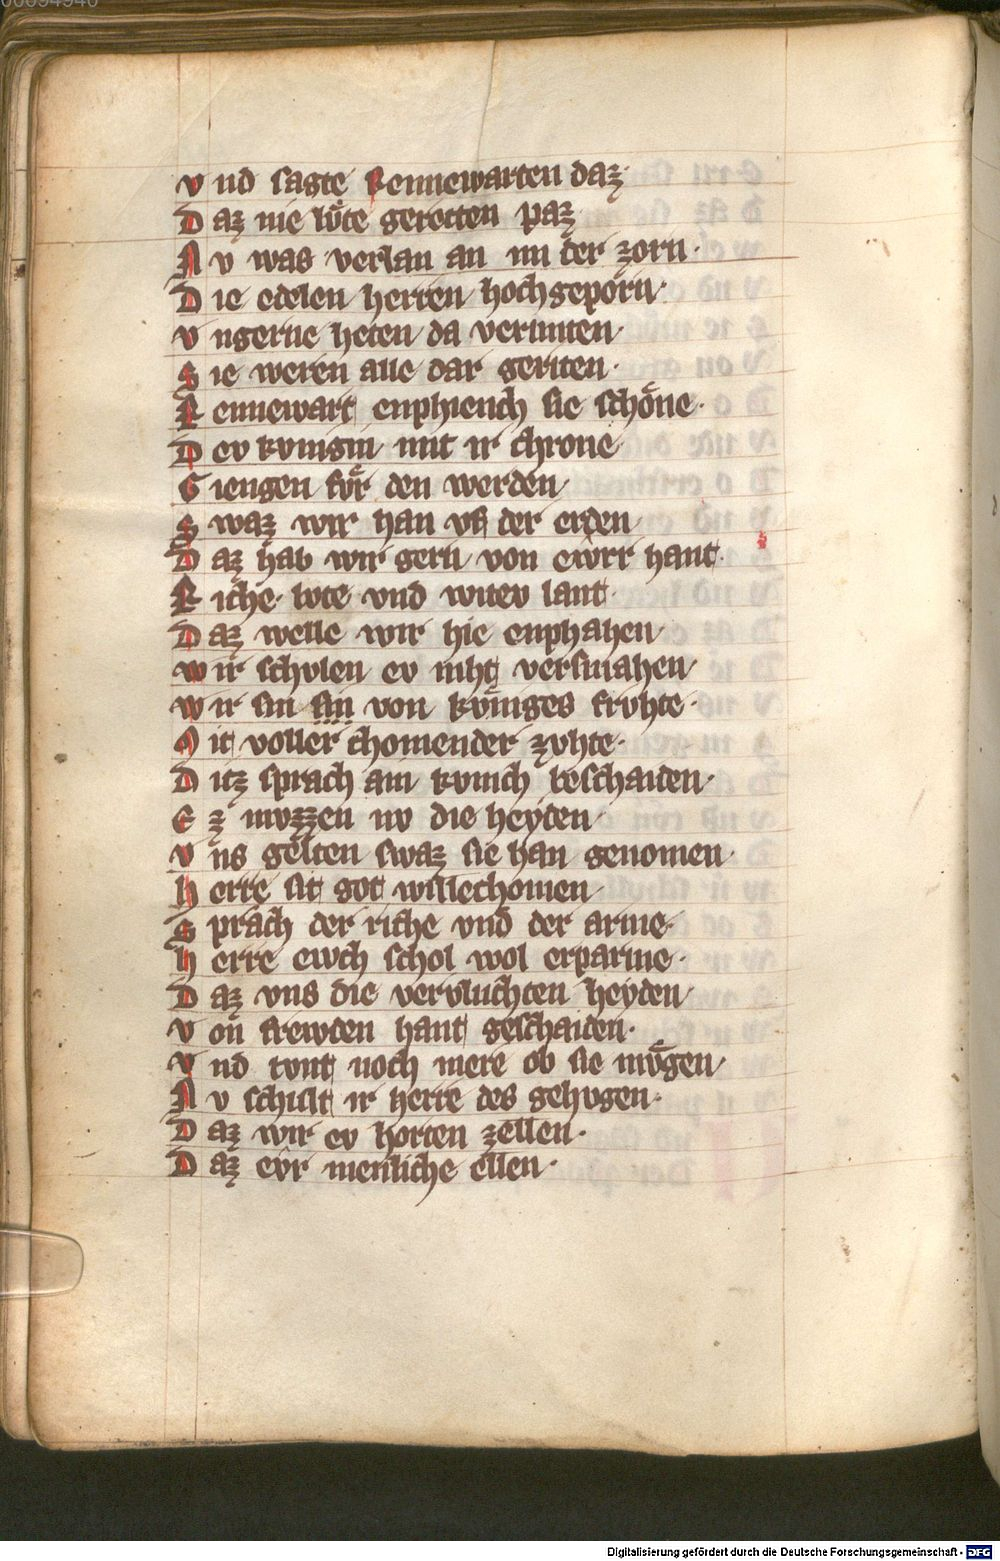 V nd sagte Rennewarten daz·
D az nie lv̊te gerecten paz
N v was verlan an im der zorn·
D ie edelen herren hochgeporn·
V ngerne heten da vermiten·
S ie weren alle dar geriten·
R ennewart enphiench sie schône·
D ev kvnigin mit ir chrone
G iengen fv̊r den werden
S waz wir han vf der erden
D az hab wir gern von ewrr hant·
R iche lvte vnd witev lant·
D az welle wir hie enphahen
W ir schvlen ev niht versmahen
W ir sin sin von kv̊niges frvhte·
M it voller chomender zvhte·
D itz sprach ain kvnich beschaiden·
E z mvzzen nv die heyden·
V ns gelten swaz sie han genomen
H erre sit got willechomen
S prach der riche vnd der arme·
H erre ewch schol wol erparme·
D az vns die vervluchten heyden
V on frewden hant geschaiden·
V nd tvnt noch mere ob sie mv̊gen
N v schult ir herre des gehvgen·
D az wir ev horten zellen·
D az evr menliche ellen·
Digitalisierung gefördert durch die Deutsche Forschungsgemeinschaft - DFG